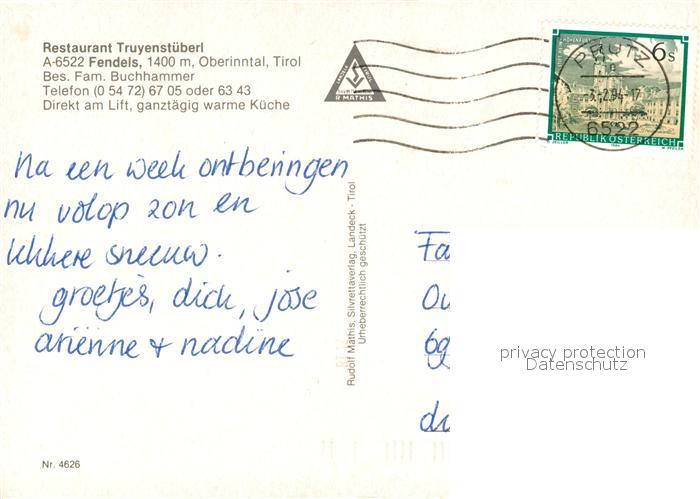 Restaurant Truyenstüberl
A-6522 Fendels, 1400 m, Oberinntal, Tirol
Bes. Fam. Buchhammer
Telefon (0 54 72) 67 05 oder 63 43
Direkt am Lift, ganztägig warme Küche
R MATHIS
PRUTZ
6522
6s
REPUBLIK ÖSTERREICH
Na een week ontberingen
nu volop zon en
lekkere sneeuw.
groetjes, dick, jose
ariënne + nadine
Rudolf Mathis, Silvrettaverlag, Landeck - Tirol
Urheberrechtlich geschützt
Fa
privacy protection
Datenschutz
Nr. 4626